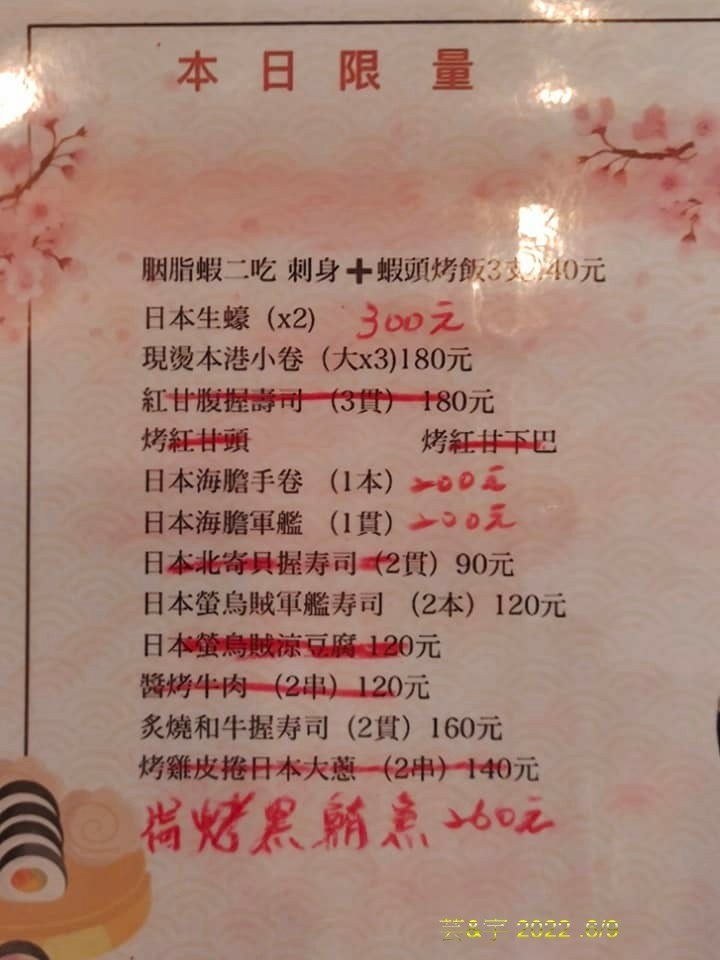 本日限量
胭脂蝦二吃 刺身➕蝦頭烤飯3支 40元
日本生蠔 (x2) 300元
現燙本港小卷 (大x3)180元
紅甘腹握壽司 (3貫) 180元
烤紅甘頭 烤紅甘下巴
日本海膽手卷 (1本) 200元
日本海膽軍艦 (1貫) 200元
日本北寄貝握寿司 (2貫) 90元
日本螢烏賊軍艦寿司 (2本) 120元
日本螢烏賊涼豆腐 120元
醬烤牛肉 (2串) 120元
炙燒和牛握寿司 (2貫) 160元
烤雞皮捲日本大蔥 (2串) 140元
烤黑鮪魚 260元
芸&宇 2022 .6/9